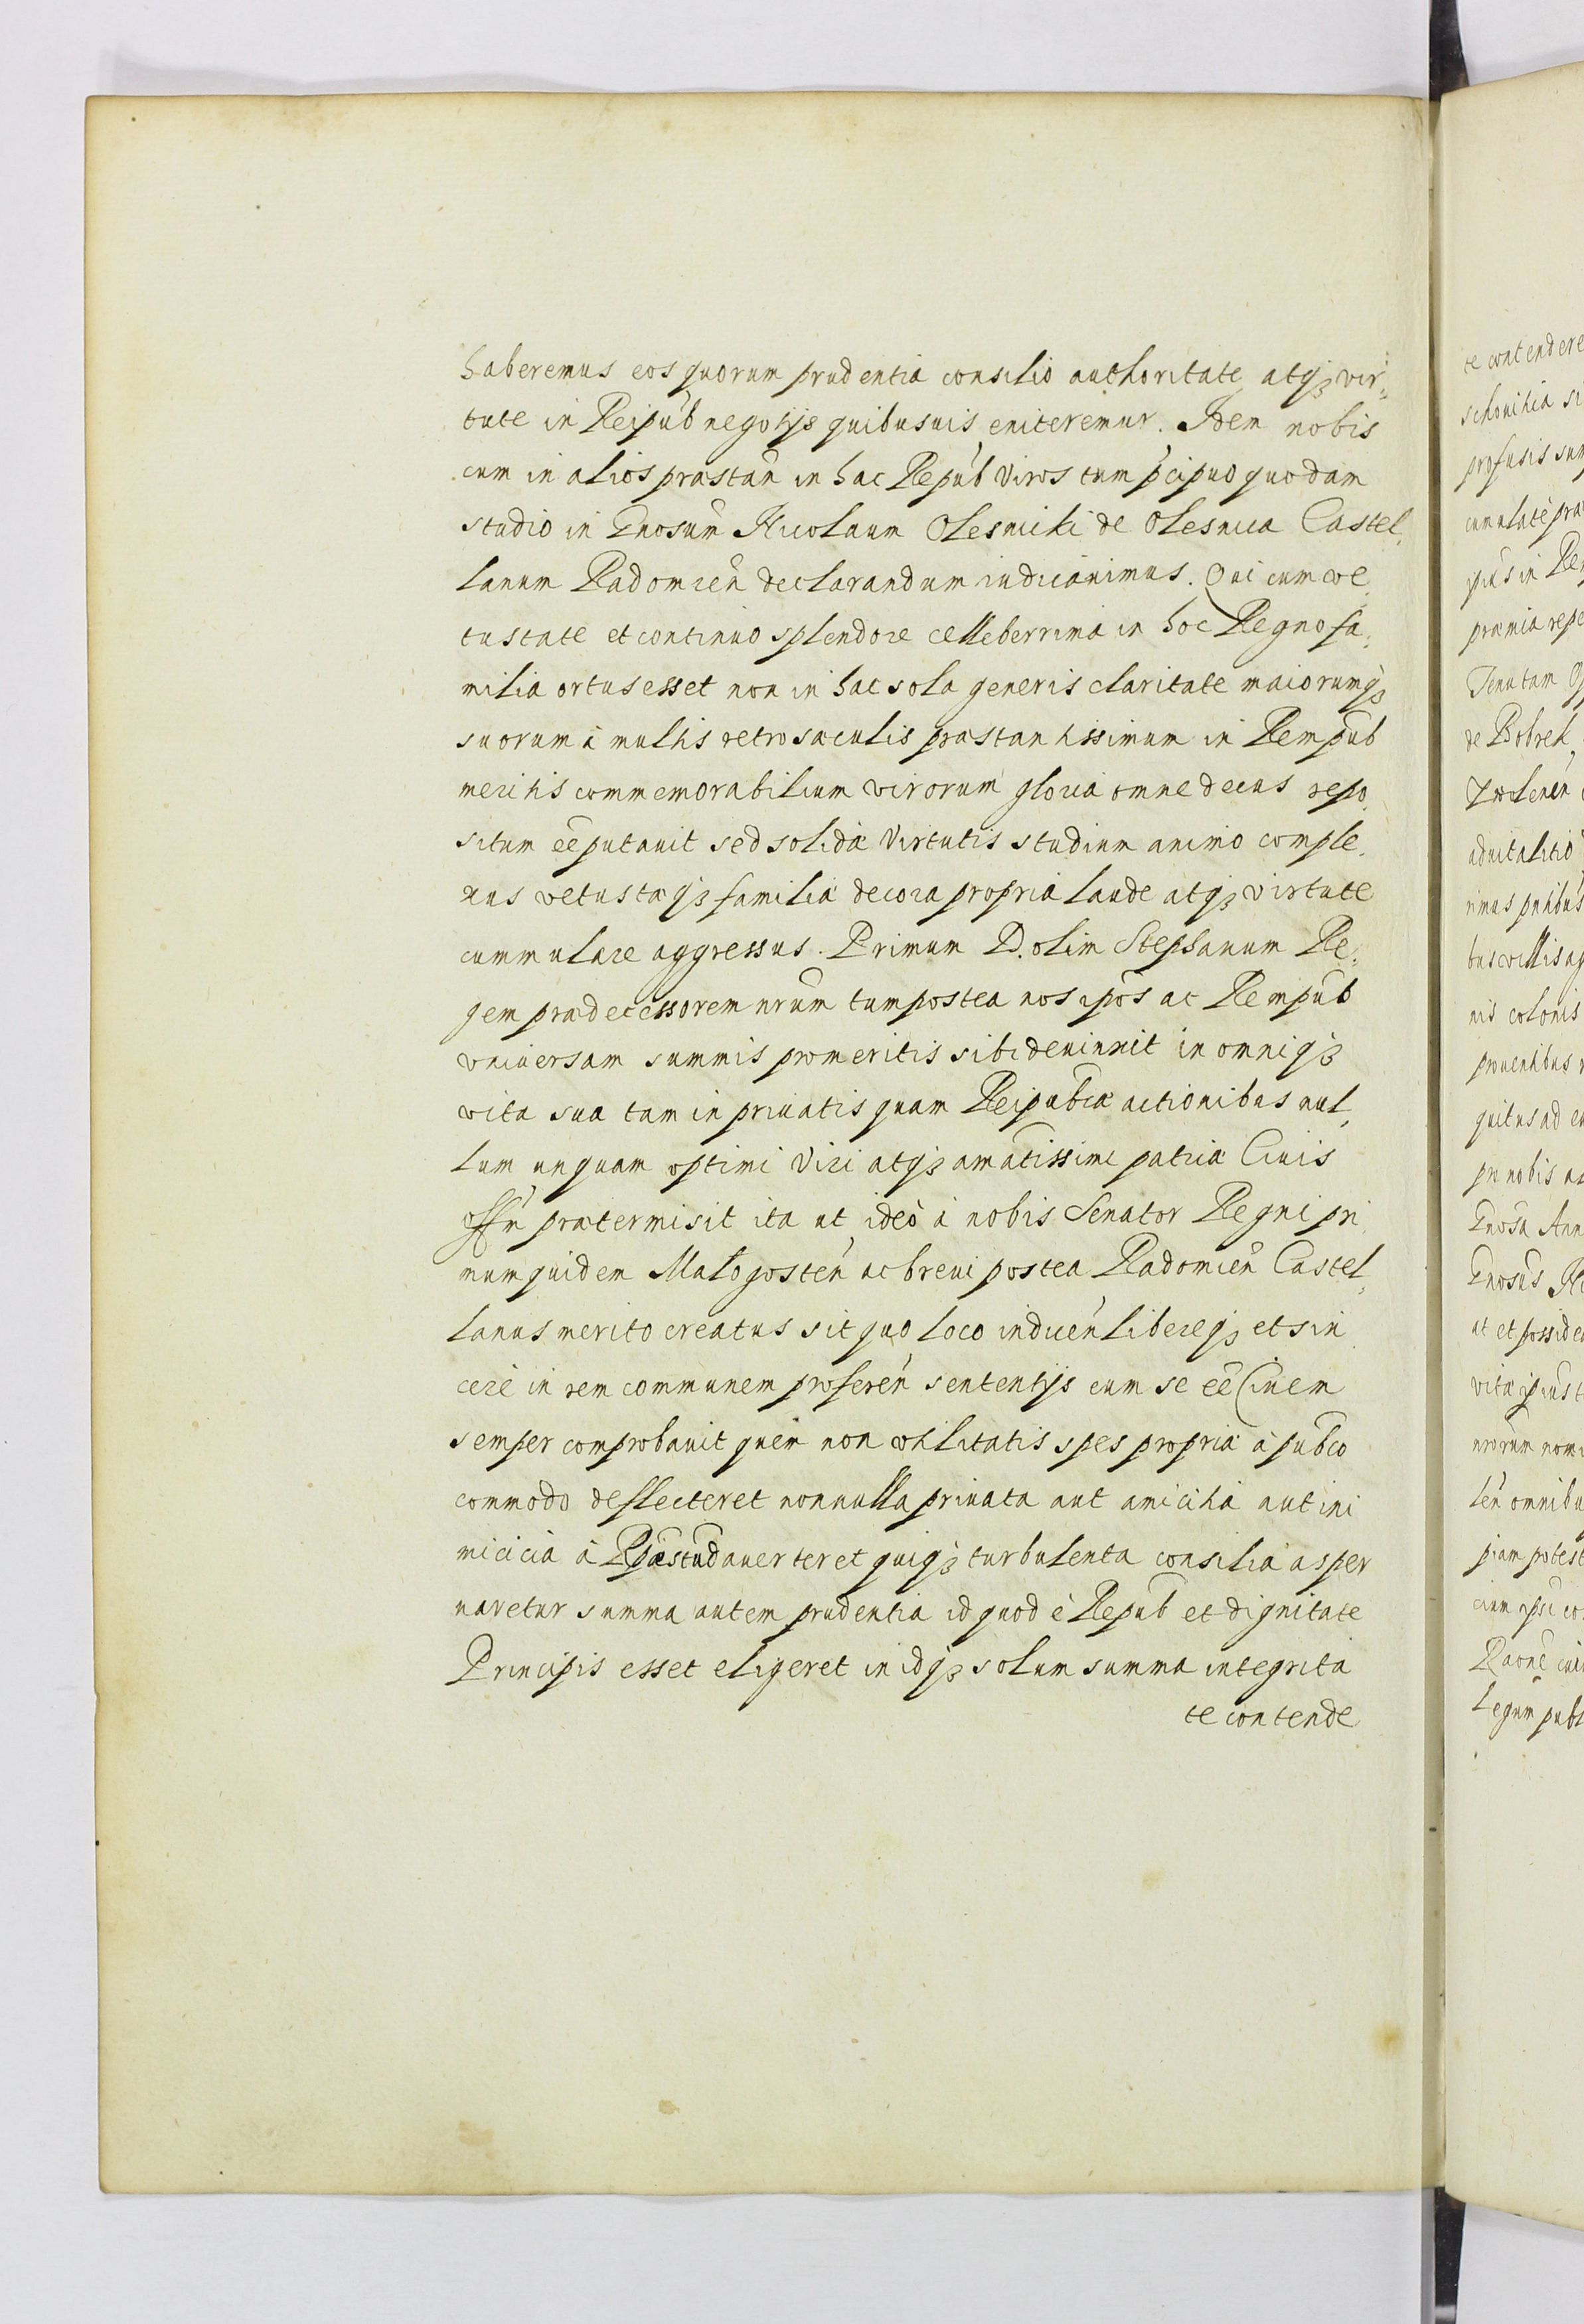 haberemus eos quorum prudentia consilio authoritate atq₃ vir
tute in Reipub negotijs quibusuis eniteremur. Idem nobis
cum in alios præstan in hac Repub Viros tum pcipuo quodam
studio in Gnosum Nicolaum Olesnicki de Olesnica Castel
lanum Radomien declarandum iudicauimus. Qui cum ve
tustate et continuo splendore celleberrima in hoc Regno fa
milia ortus esset non in hac sola generis claritate maiorumq₃
suorum à multis retro sæculis præstantissimum in Rempub
meritis commemorabilium virorum gloria omne decus repo
situm ee putauit sed solidæ Virtutis studium animo comple
xus vetustæq₃ familiæ decora propria laude atq₃ virtute
cummulare aggressus. Primum D. olim Stephanum Re
gem prædecessorem nrum tum postea nos ipos ac Rempub
vniuersam summis promeritis sibi deuinxit in omniq₃
vita sua tam in priuatis quam Reipubcæ actionibus nul
lum unquam optimi Viri atq₃ amatissimi patriæ Ciuis
offn prætermisit ita ut ideò à nobis Senator Regni pri
mum quidem Malogosten ac breui postea Radomien Castel
lanus merito creatus sit quo loco inducen libereq₃ et sin
cerè in rem communem proferen sententijs eum se ee Ciuem
semper comprobauit quem non vtilitatis spes propriæ à pubco
commodo deflecteret non nulla priuata aut amicitia aut ini
micicia à Rpæ stud auerteret quiq₃ turbulenta consilia asper
naretur summa autem prudentia id quod è Repub et dignitate
Principis esset eligeret in idq₃ solum summa integrita
te contende

te contendere
schouitia si
profusis sum
cumulatè præ
ipius in Re
præmia repe
Tenutam
de Bobrek
Zwolenen
aduitalitio
rimus pntibus
bus villis ag
nis colonis
prouentibus
quitus ad
pn nobis
Gnosa Ann
Gnosus Ni
ut et possidea
vitæ ipius
nrorum nom
len omnibu
piam potest
cium ipsi
Raone
Legum publ